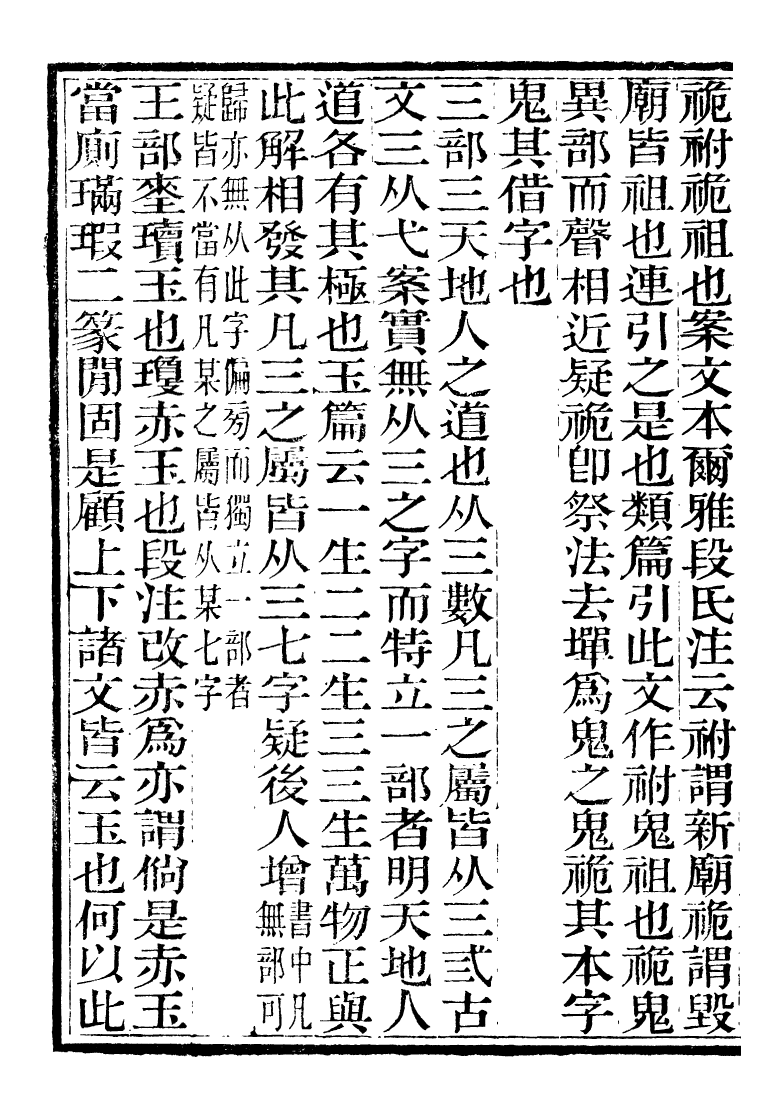 祪祔祪祖也案文本爾雅段氏注云祔謂新廟祪謂毀
廟皆祖也連引之是也類篇引此文作祔鬼祖也祪鬼
異部而聲相近疑祪卽祭法去墠爲鬼之鬼祪其本字
鬼其借字也
三部三天地人之道也从三數凡三之屬皆从三弎古
文三从弋案實無从三之字而特立一部者明天地人
道各有其極也玉篇云一生二二生三三生萬物正與
此解相發其凡三之屬皆从三七字疑後人增書中凡
無部可
歸亦無从此字偏旁而獨立一部者
疑皆不當有凡某之屬皆从某七字
王部瓄玉也瓊赤玉也段注改赤爲亦謂倘是赤玉
當廁璊瑕二篆閒固是顧上下諸文皆云玉也何以此